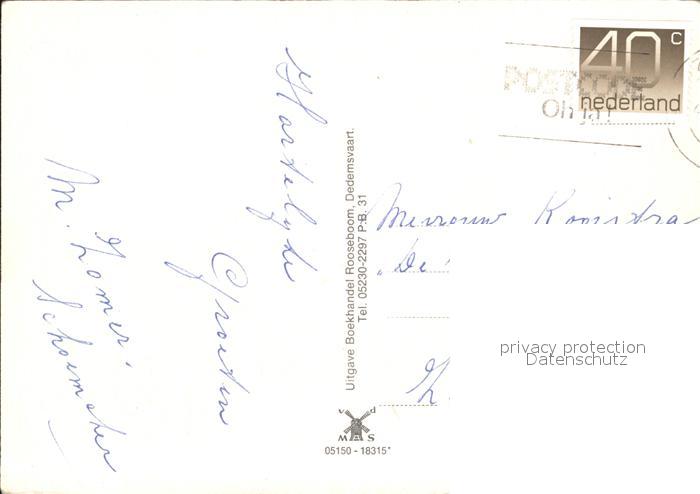 Hartelyke
Groeten
M. Zomer.
Schoemaker
Uitgave Boekhandel Rooseboom, Dedemsvaart.
Tel. 05230-2297 P.B. 31
v d
MAS
05150 - 18315*
40 c
nederland
POSTCODE
Oh ja!
Mevrouw Kooistra
"De
Z.
privacy protection
Datenschutz